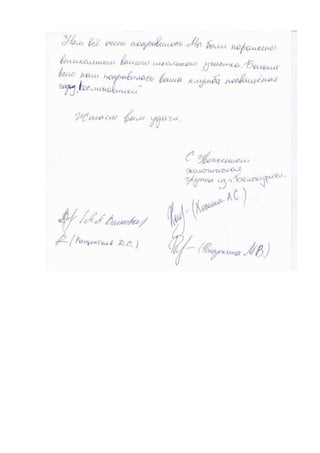 "Нам всё очень понравилось. Мы были поражены
великолепием вашего школьного участка. Больше
всего нам понравилась ваша клумба посвящёная
году "космонавтики"
Желаем вам удачи.
С Уважением
экологическая
группа из г. Белокурихи.
(Хохлина А.С.)
(А.А.
Д.С.)
М.В.)